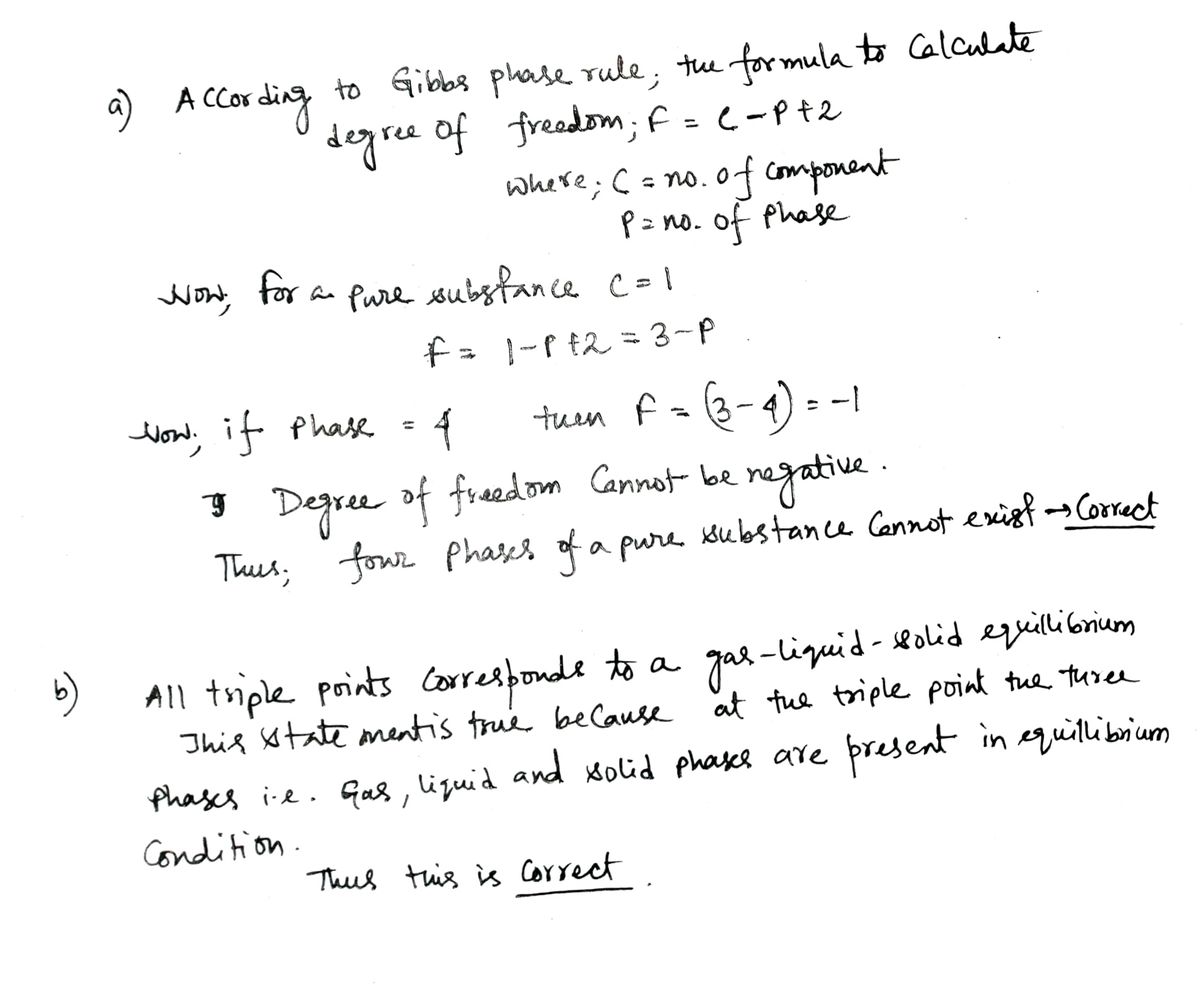 a) According to Gibbs phase rule, the formula to Calculate
degree of freedom; F = C - P + 2
where; C = no. of component
P = no. of phase
Now, for a pure substance C = 1
F = 1 - P + 2 = 3 - P
Now; if Phase = 4 then F = (3 - 4) = -1
Degree of freedom Cannot be negative.
Thus; four phases of a pure substance Cannot exist → Correct
b) All triple points Corresponds to a gas-liquid-solid equillibrium
This statement is true because at the triple point the three
phases i.e. Gas, liquid and solid phases are present in equillibrium
Condition.
Thus this is Correct.